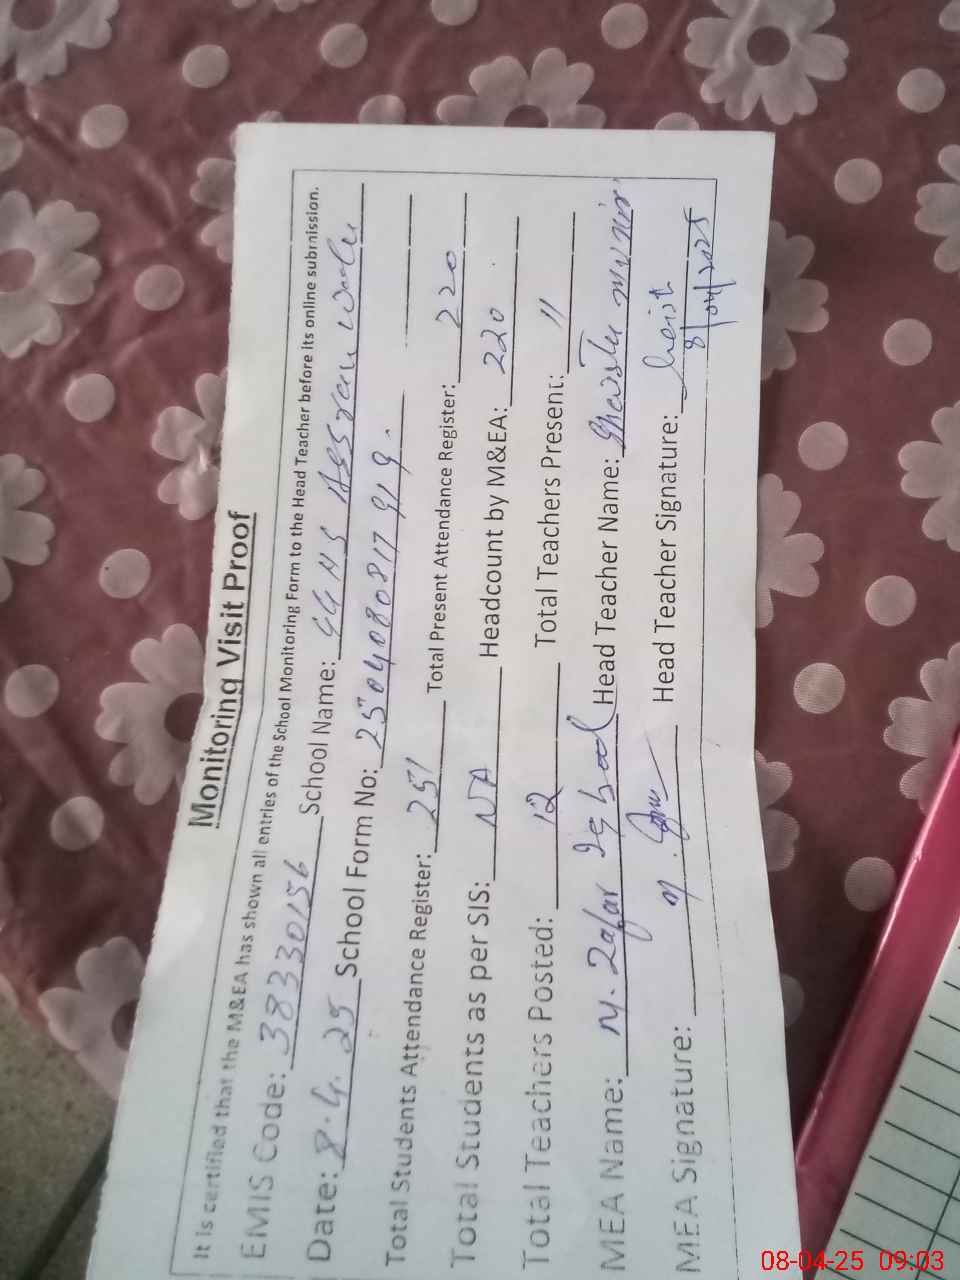 Monitoring Visit Proof
It is certified that the M&EA has shown all entries of the School Monitoring Form to the Head Teacher before its online submission.
EMIS Code: 38330156 School Name: GGHS
Date: 8.4.25 School Form No: 2504080817919.
Total Students Attendance Register: 251 Total Present Attendance Register: 220
Total Students as per SIS: NA Headcount by M&EA: 220
Total Teachers Posted: 12 Total Teachers Present: 11
MEA Name: M. Zafar Iqbal Head Teacher Name:
MEA Signature: Head Teacher Signature:
8/04/2025
08-04-25 09:03